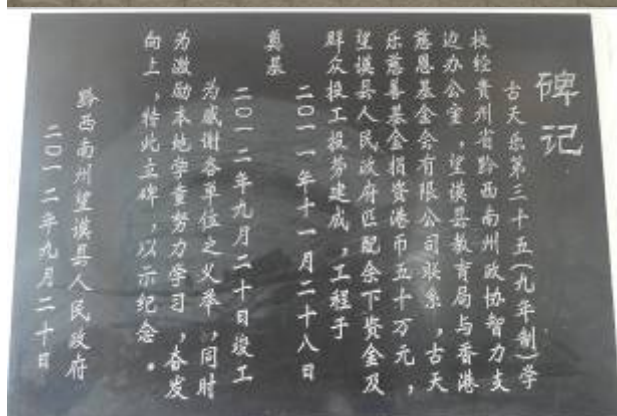 碑记
古天乐第三十五(九年制)学
校经贵州省黔西南州政协智力支
边办公室，望谟县教育局与香港
慈恩基金会有限公司联系，古天
乐慈善基金捐资港币五十万元，
望谟县人民政府匹配余下资金及
群众投工投劳建成，工程于
二〇一一年十一月二十八日
奠基
二〇一二年九月二十日竣工
为感谢各单位之义举，同时
为激励本地学童努力学习，奋发
向上，特此立碑，以示纪念。
黔西南州望谟县人民政府
二〇一二年九月二十日